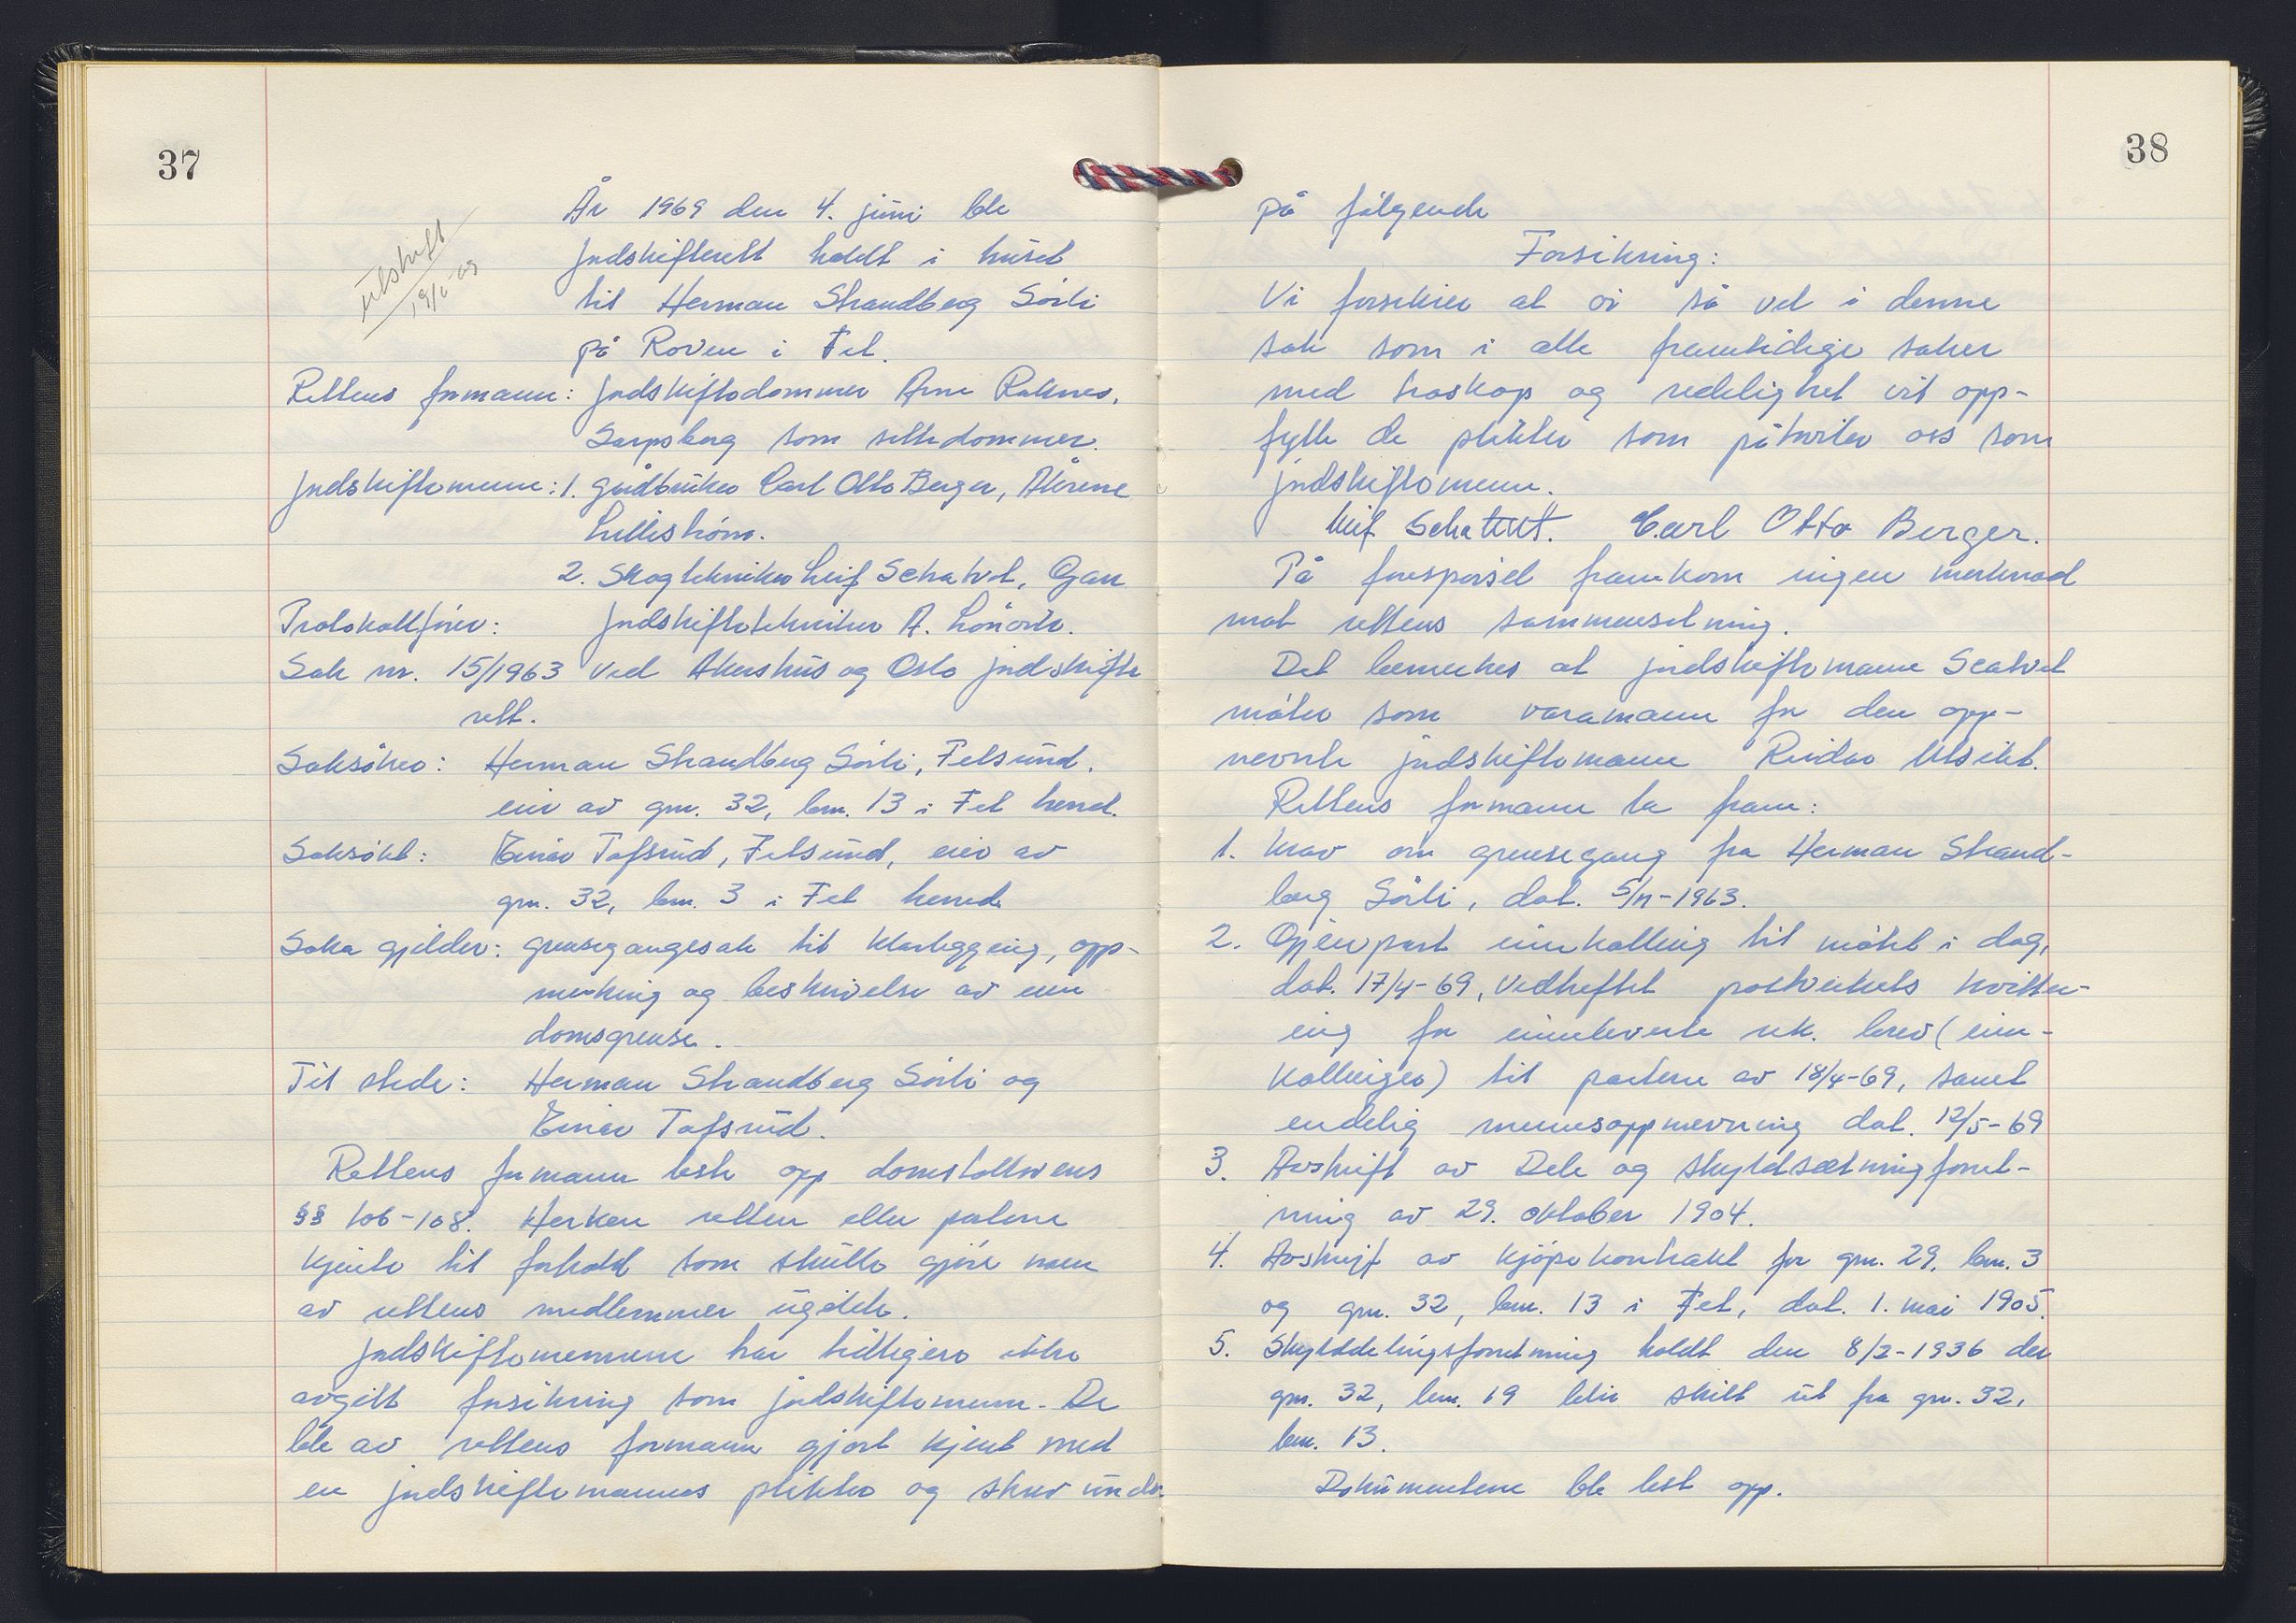 37
utskrift
19/6-69
År 1969 den 4. juni ble
jordskifterett holdt i huset
til Herman Strandberg Sörli
på Roven i Fet.
Rettens formann: jordskiftedommer Arne Raknes,
Sarpsborg som settedommer.
Jordskiftemenn: 1. gårdbruker Carl Otto Berger,
Lilleström.
2. Skogtekniker Leif Schatvet, Gan
Protokollförer: Jordskiftetekniker A.
Sak nr. 15/1963 ved Akershus og Oslo jordskifte
rett.
Saksöker: Herman Strandberg Sörli, Fetsund.
eier av gnr. 32, bnr. 13 i Fet herred.
Saksökt: Einar Tofsrud, Fetsund, eier av
gnr. 32, bnr. 3 i Fet herred
Saka gjelder: grensegangsak til klarlegging, opp-
merking og beskrivelse av eien
domsgrense.
Til stede: Herman Strandberg Sörli og
Einar Tofsrud.
Rettens formann leste opp domstollovens
§§ 106-108. Herken retten eller partene
kjente til forhold som skulle gjöre noen
av rettens medlemmer ugilde.
Jordskiftemennene har tidligere ikke
avgitt forsikring som jordskiftemenn. De
ble av rettens formann gjort kjent med
en jordskiftemanns plikter og skrev under
38
på fölgende
Forsikring:
Vi forsikrer at vi så vel i denne
sak som i alle framtidige saker
med troskap og redelighet vil opp-
fylle de plikter som påhviler oss som
jordskiftemenn.
Leif Schatvet. Carl Otto Berger.
På forespörsel framkom ingen merknad
mot rettens sammensetning.
Det bemerkes at jordskiftemann Scatvet
möter som varamann for den opp-
nevnte jordskiftemann Reidar Utsikt.
Rettens formann la fram:
1. Krav om grensegang fra Herman Strand-
berg Sörli, dat. 5/11-1963.
2. Gjenpart innkalling til mötet i dag,
dat. 17/4-69, vedheftet postverkets kvitter-
ing for innleverte rek. brev (inn-
kallinger) til partene av 18/4-69, samt
endelig mennsoppnevning dat. 12/5-69
3. Avskrift av Dele og skyldsætningforret-
ning av 29. oktober 1904.
4. Avskrift av kjöpekontrakt for gnr. 29, bnr. 3
og gnr. 32, bnr. 13 i Fet, dat. 1. mai 1905.
5. Skylddelingsforretning holdt den 8/2-1936 der
gnr. 32, bnr. 19 blir skilt ut fra gnr. 32,
bnr. 13.
Dokumentene ble lest opp.